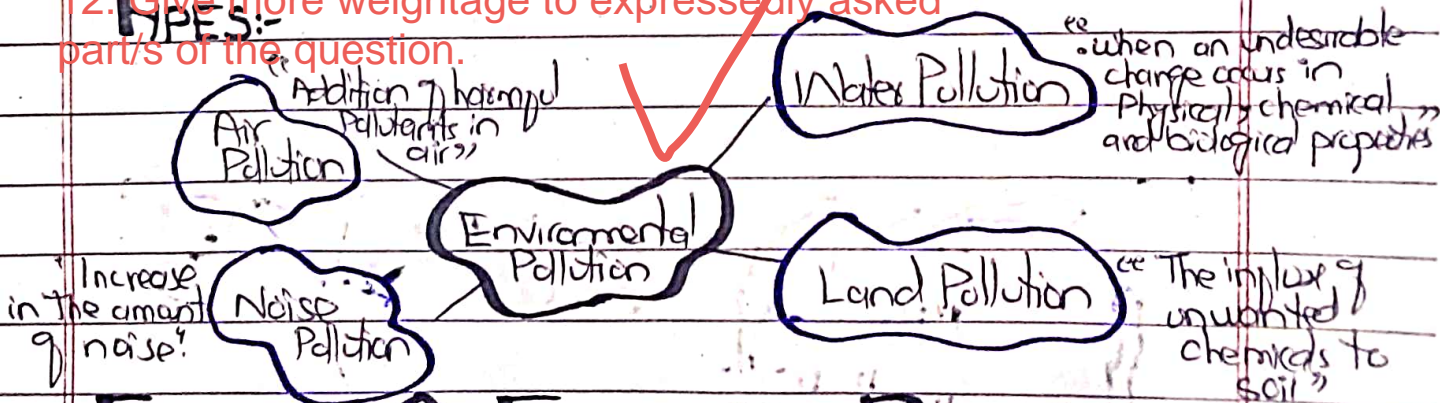 12. Give more weightage to expressedly asked
part/s of the question.
TYPES:-
Air
Pollution
"Addition of harmful
Pollutants in
air"
Water Pollution
"when an undesirable
change occurs in
Physically chemical
and biological properties"
Environmental
Pollution
"Increase
in the amant
of noise".
Noise
Pollution
Land Pollution
"The influx of
unwanted
chemicals to
soil"